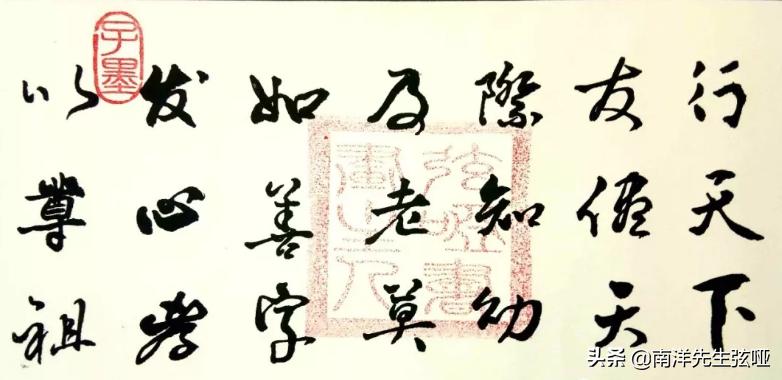 行天下
友儘天
際知幼
及老莫
如善字
发心孝
以尊祖
子墨
头条 @南洋先生弦哑